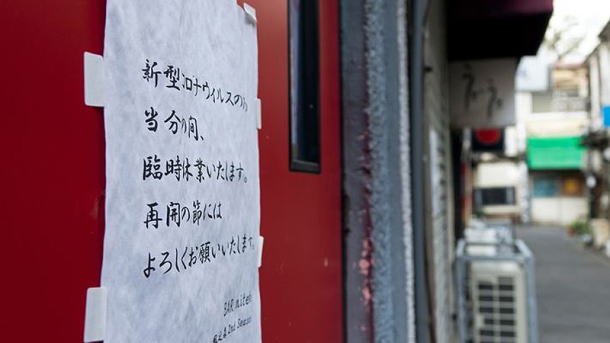 新型コロナウィルスの為
当分の間、
臨時休業いたします。
再開の節には
よろしくお願いいたします。
BAR
2nd Season